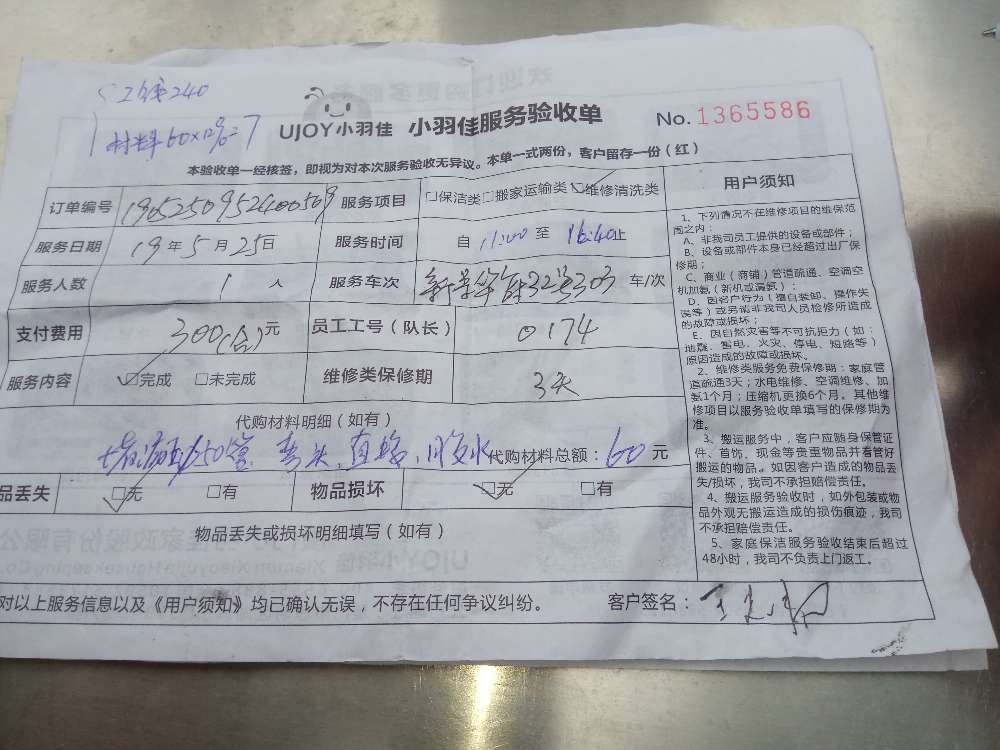 工钱240
材料60×12%=7
UJOY小羽佳 小羽佳服务验收单 No. 1365586
本验收单一经核签，即视为对本次服务验收无异议。本单一式两份，客户留存一份（红）
订单编号 1905250952400509 服务项目 □保洁类□搬家运输类□维修清洗类
服务日期 19年5月25日 服务时间 自11:00至16:40止
服务人数 1人 服务车次 32号303 车/次
支付费用 300(合)元 员工工号（队长） 0174
服务内容 □完成 □未完成 维修类保修期 3天
代购材料明细（如有）
50管 弯头、直接、胶水 代购材料总额：60元
品丢失 □无 □有 物品损坏 □无 □有
物品丢失或损坏明细填写（如有）
对以上服务信息以及《用户须知》均已确认无误，不存在任何争议纠纷。 客户签名：
用户须知
1、下列情况不在维修项目的维保范
围之内：
A、非我司员工提供的设备或部件；
B、设备或部件本身已经超过出厂保
修期；
C、商业（商铺）管道疏通、空调空
机加氨（新机或漏氨）；
D、因客户行为（擅自装卸、操作失
误等）或另请非我司人员检修所造成
的故障或损坏；
E、因自然灾害等不可抗拒力（如：
地震、雷电、火灾、停电、短路等）
原因造成的故障或损坏。
2、维修类服务免费保修期：家庭管
道疏通3天；水电维修、空调维修、加
氨1个月；压缩机更换6个月。其他维
修项目以服务验收单填写的保修期为
准。
3、搬运服务中，客户应随身保管证
件、首饰、现金等贵重物品并看管好
搬运的物品。如因客户造成的物品丢
失/损坏，我司不承担赔偿责任。
4、搬运服务验收时，如外包装或物
品外观无搬运造成的损伤痕迹，我司
不承担赔偿责任。
5、家庭保洁服务验收结束后超过
48小时，我司不负责上门返工。